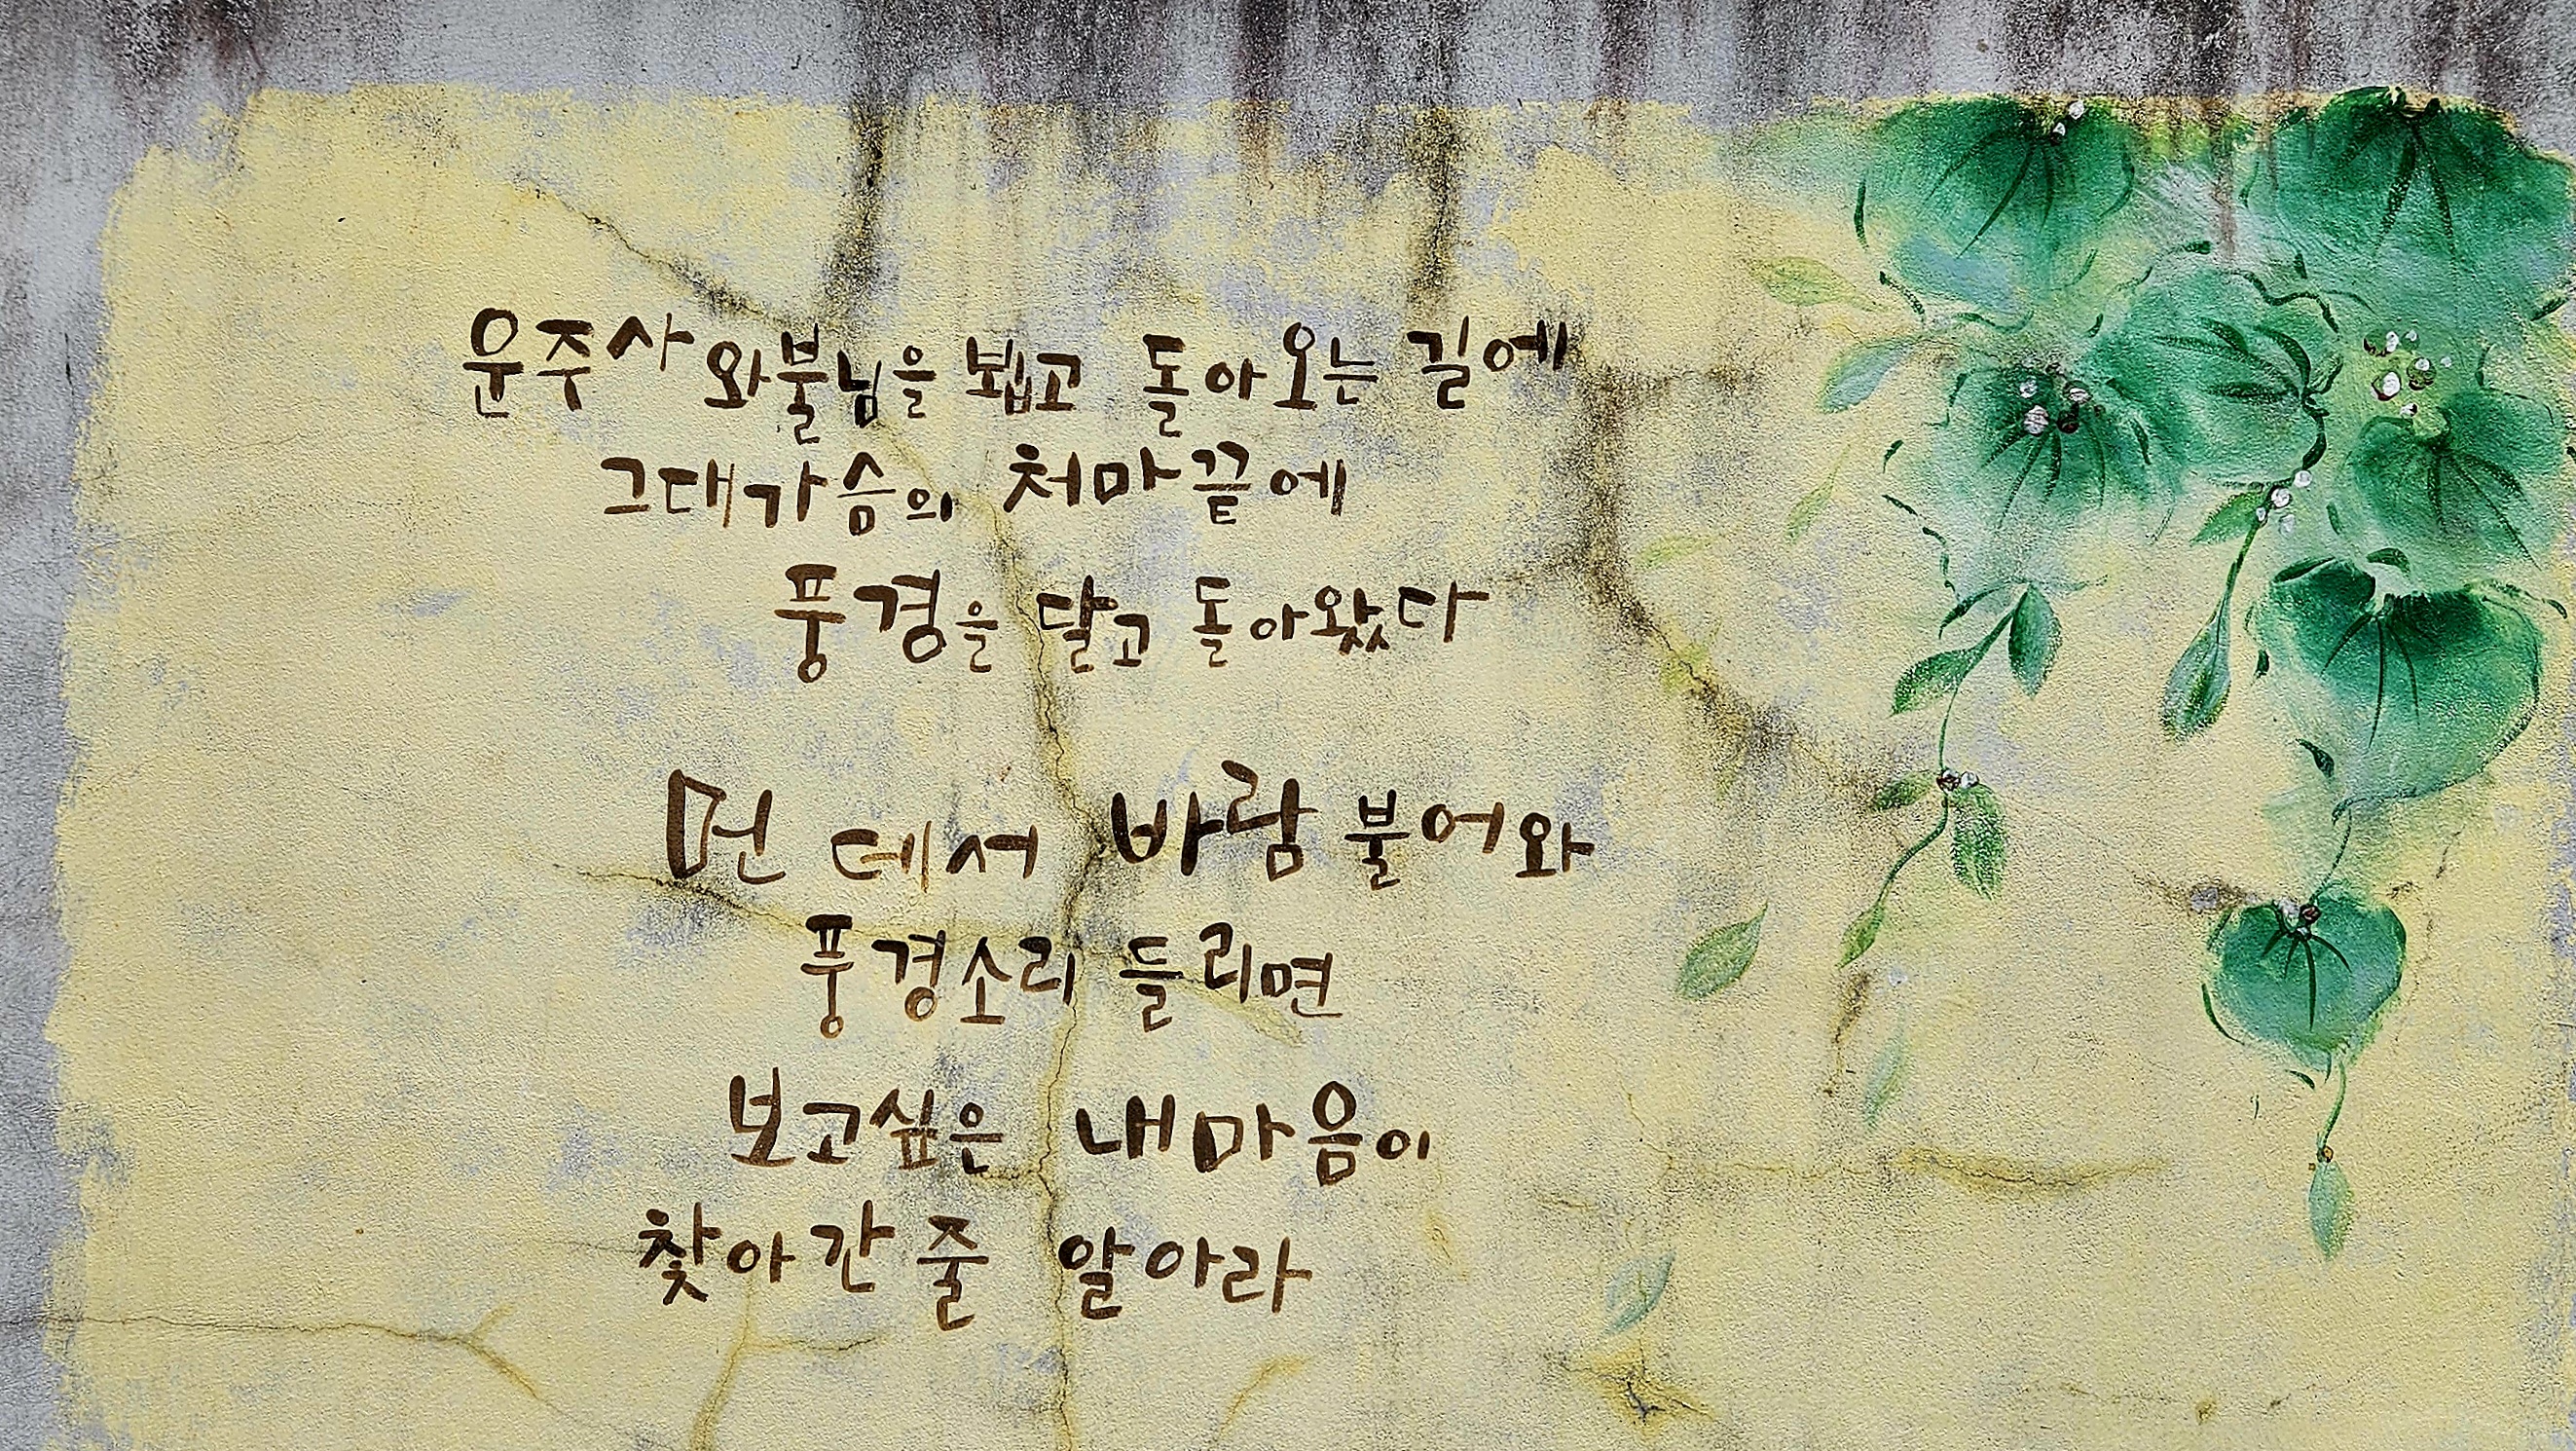 운주사 와불님을 뵙고 돌아오는 길에
그대가슴의 처마끝에
풍경을 달고 돌아왔다
먼 데서 바람 불어와
풍경소리 들리면
보고싶은 내마음이
찾아간 줄 알아라